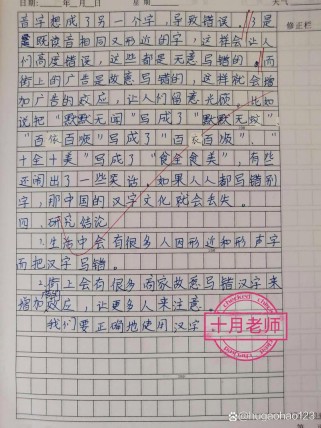 日期: 年 月 日
天气
修正栏
音字想成了另一个字，导致错误。3是
既读音相同又形近的字，这样会让人
们高度错误，这些都是无意写错的。而
街上的广告是故意写错的，这样就会增
加广告的效应，让人们留意光顾。比如
说把“默默无闻”写成了“默默无蚊”
“百依百顺”写成了“百衣百顺”.
十全十美”写成了“食全食美”，有些
还闹出了一些笑话。如果人人都写错别
字，那中国的汉字文化就会丢失。
四、研究结论
1.生活中会有很多人因形近和形声字
而把汉字写错。
2.街上会有很多商家故意写错汉字来
增加效应，让更多人来注意。
我们要正确地使用汉字
checked
十月老师
checked
@hugaohao123